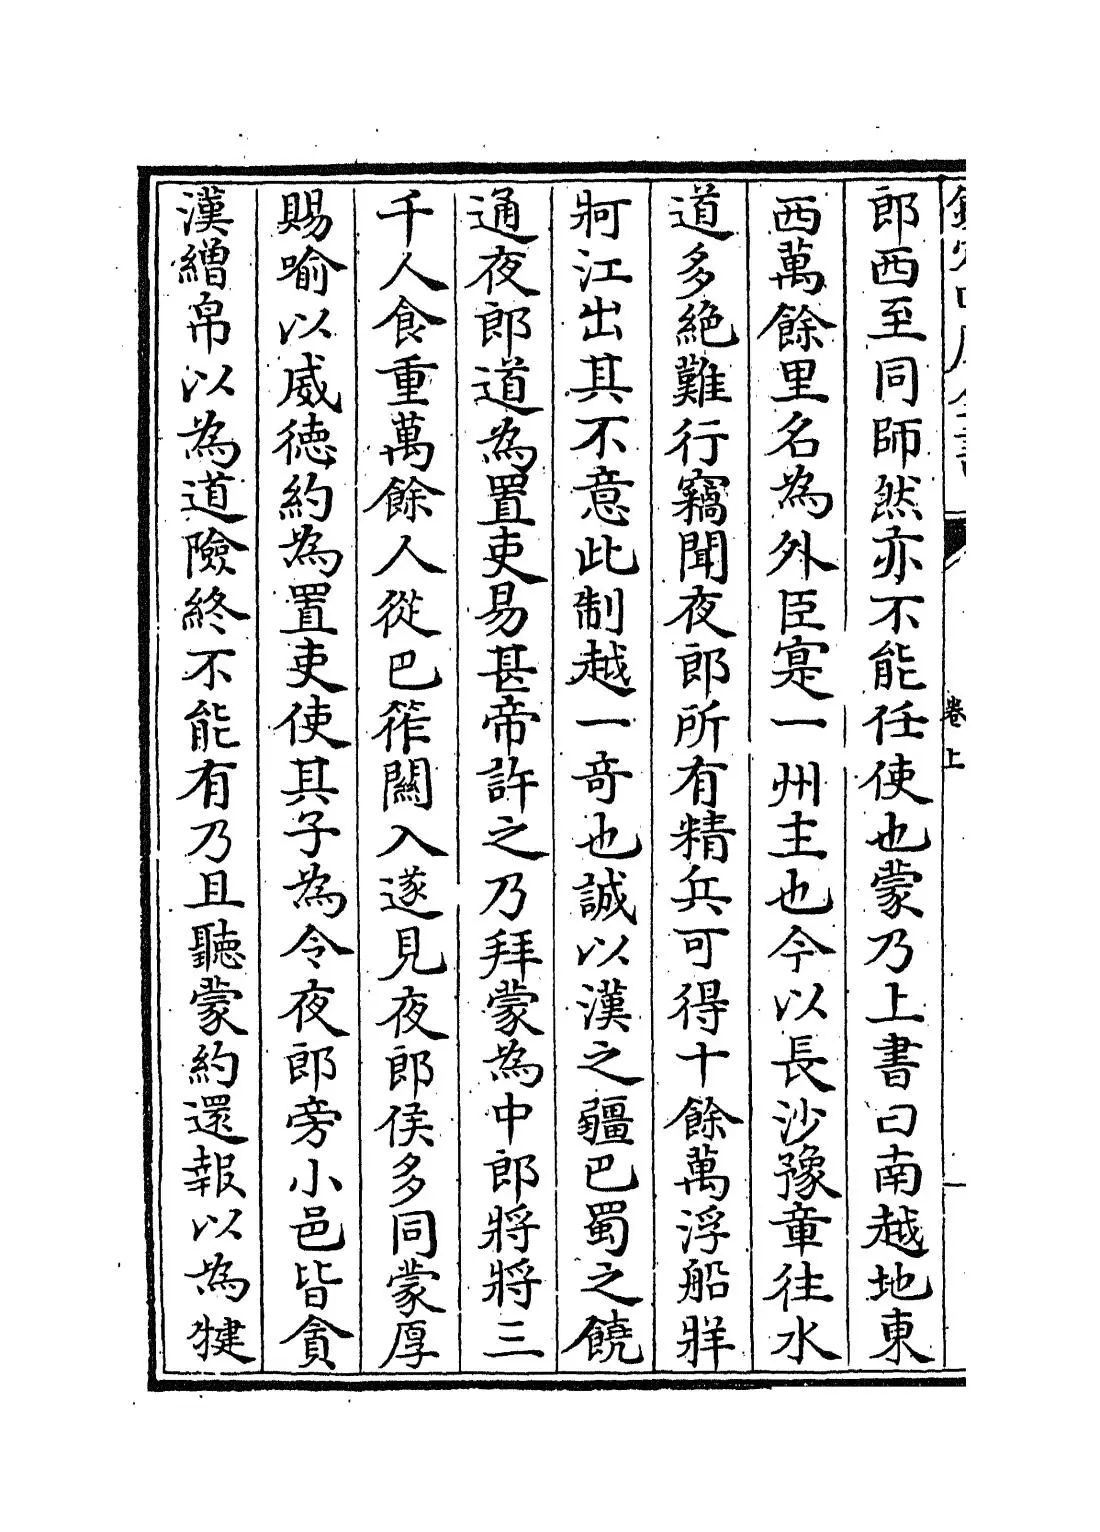 郎西至同師然亦不能任使也蒙乃上書曰南越地東
西萬餘里名為外臣寔一州主也今以長沙豫章往水
道多絶難行竊聞夜郎所有精兵可得十餘萬浮船牂
牁江出其不意此制越一奇也誠以漢之疆巴蜀之饒
通夜郎道為置吏易甚帝許之乃拜蒙為中郎將將三
千人食重萬餘人從巴筰關入遂見夜郎侯多同蒙厚
賜喻以威德約為置吏使其子為令夜郎旁小邑皆貪
漢繒帛以為道險終不能有乃且聽蒙約還報以為犍
卷上